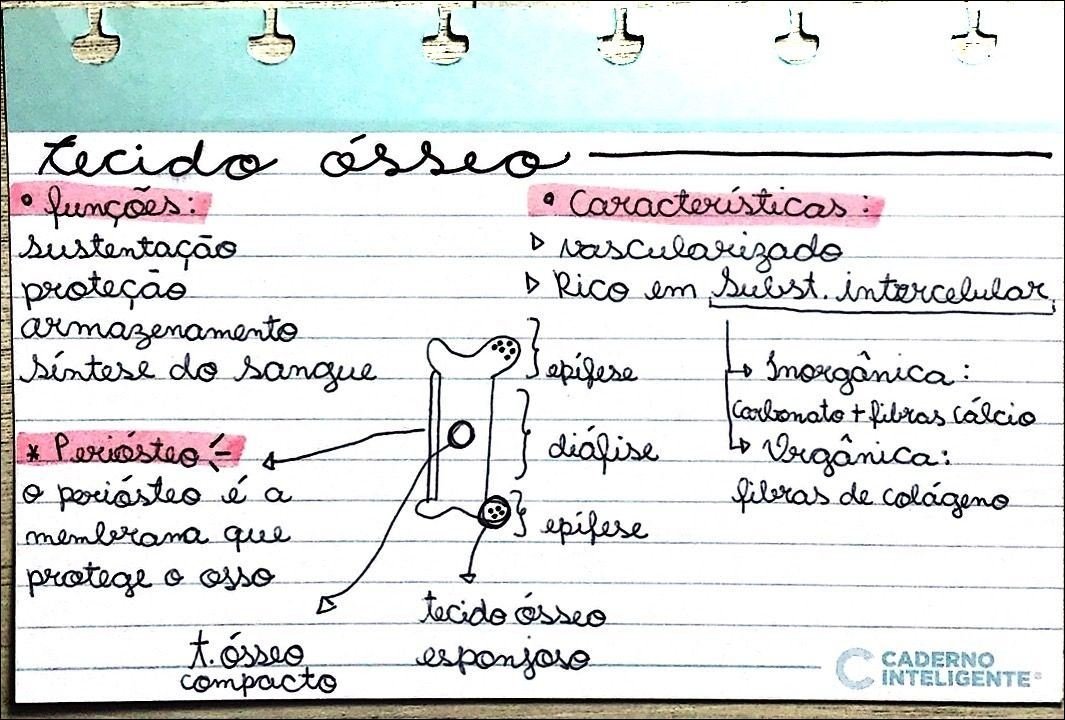 tecido ósseo
• funções:
sustentação
proteção
armazenamento
síntese do sangue
* Periósteo
o periósteo é a
membrana que
protege o osso
• Características:
▷ vascularizado
▷ Rico em subst. intercelular
epífese
diáfise
epífese
Inorgânica:
carbonato + fibras cálcio
Orgânica:
fibras de colágeno
t. ósseo
compacto
tecido ósseo
esponjoso
CADERNO
INTELIGENTE®